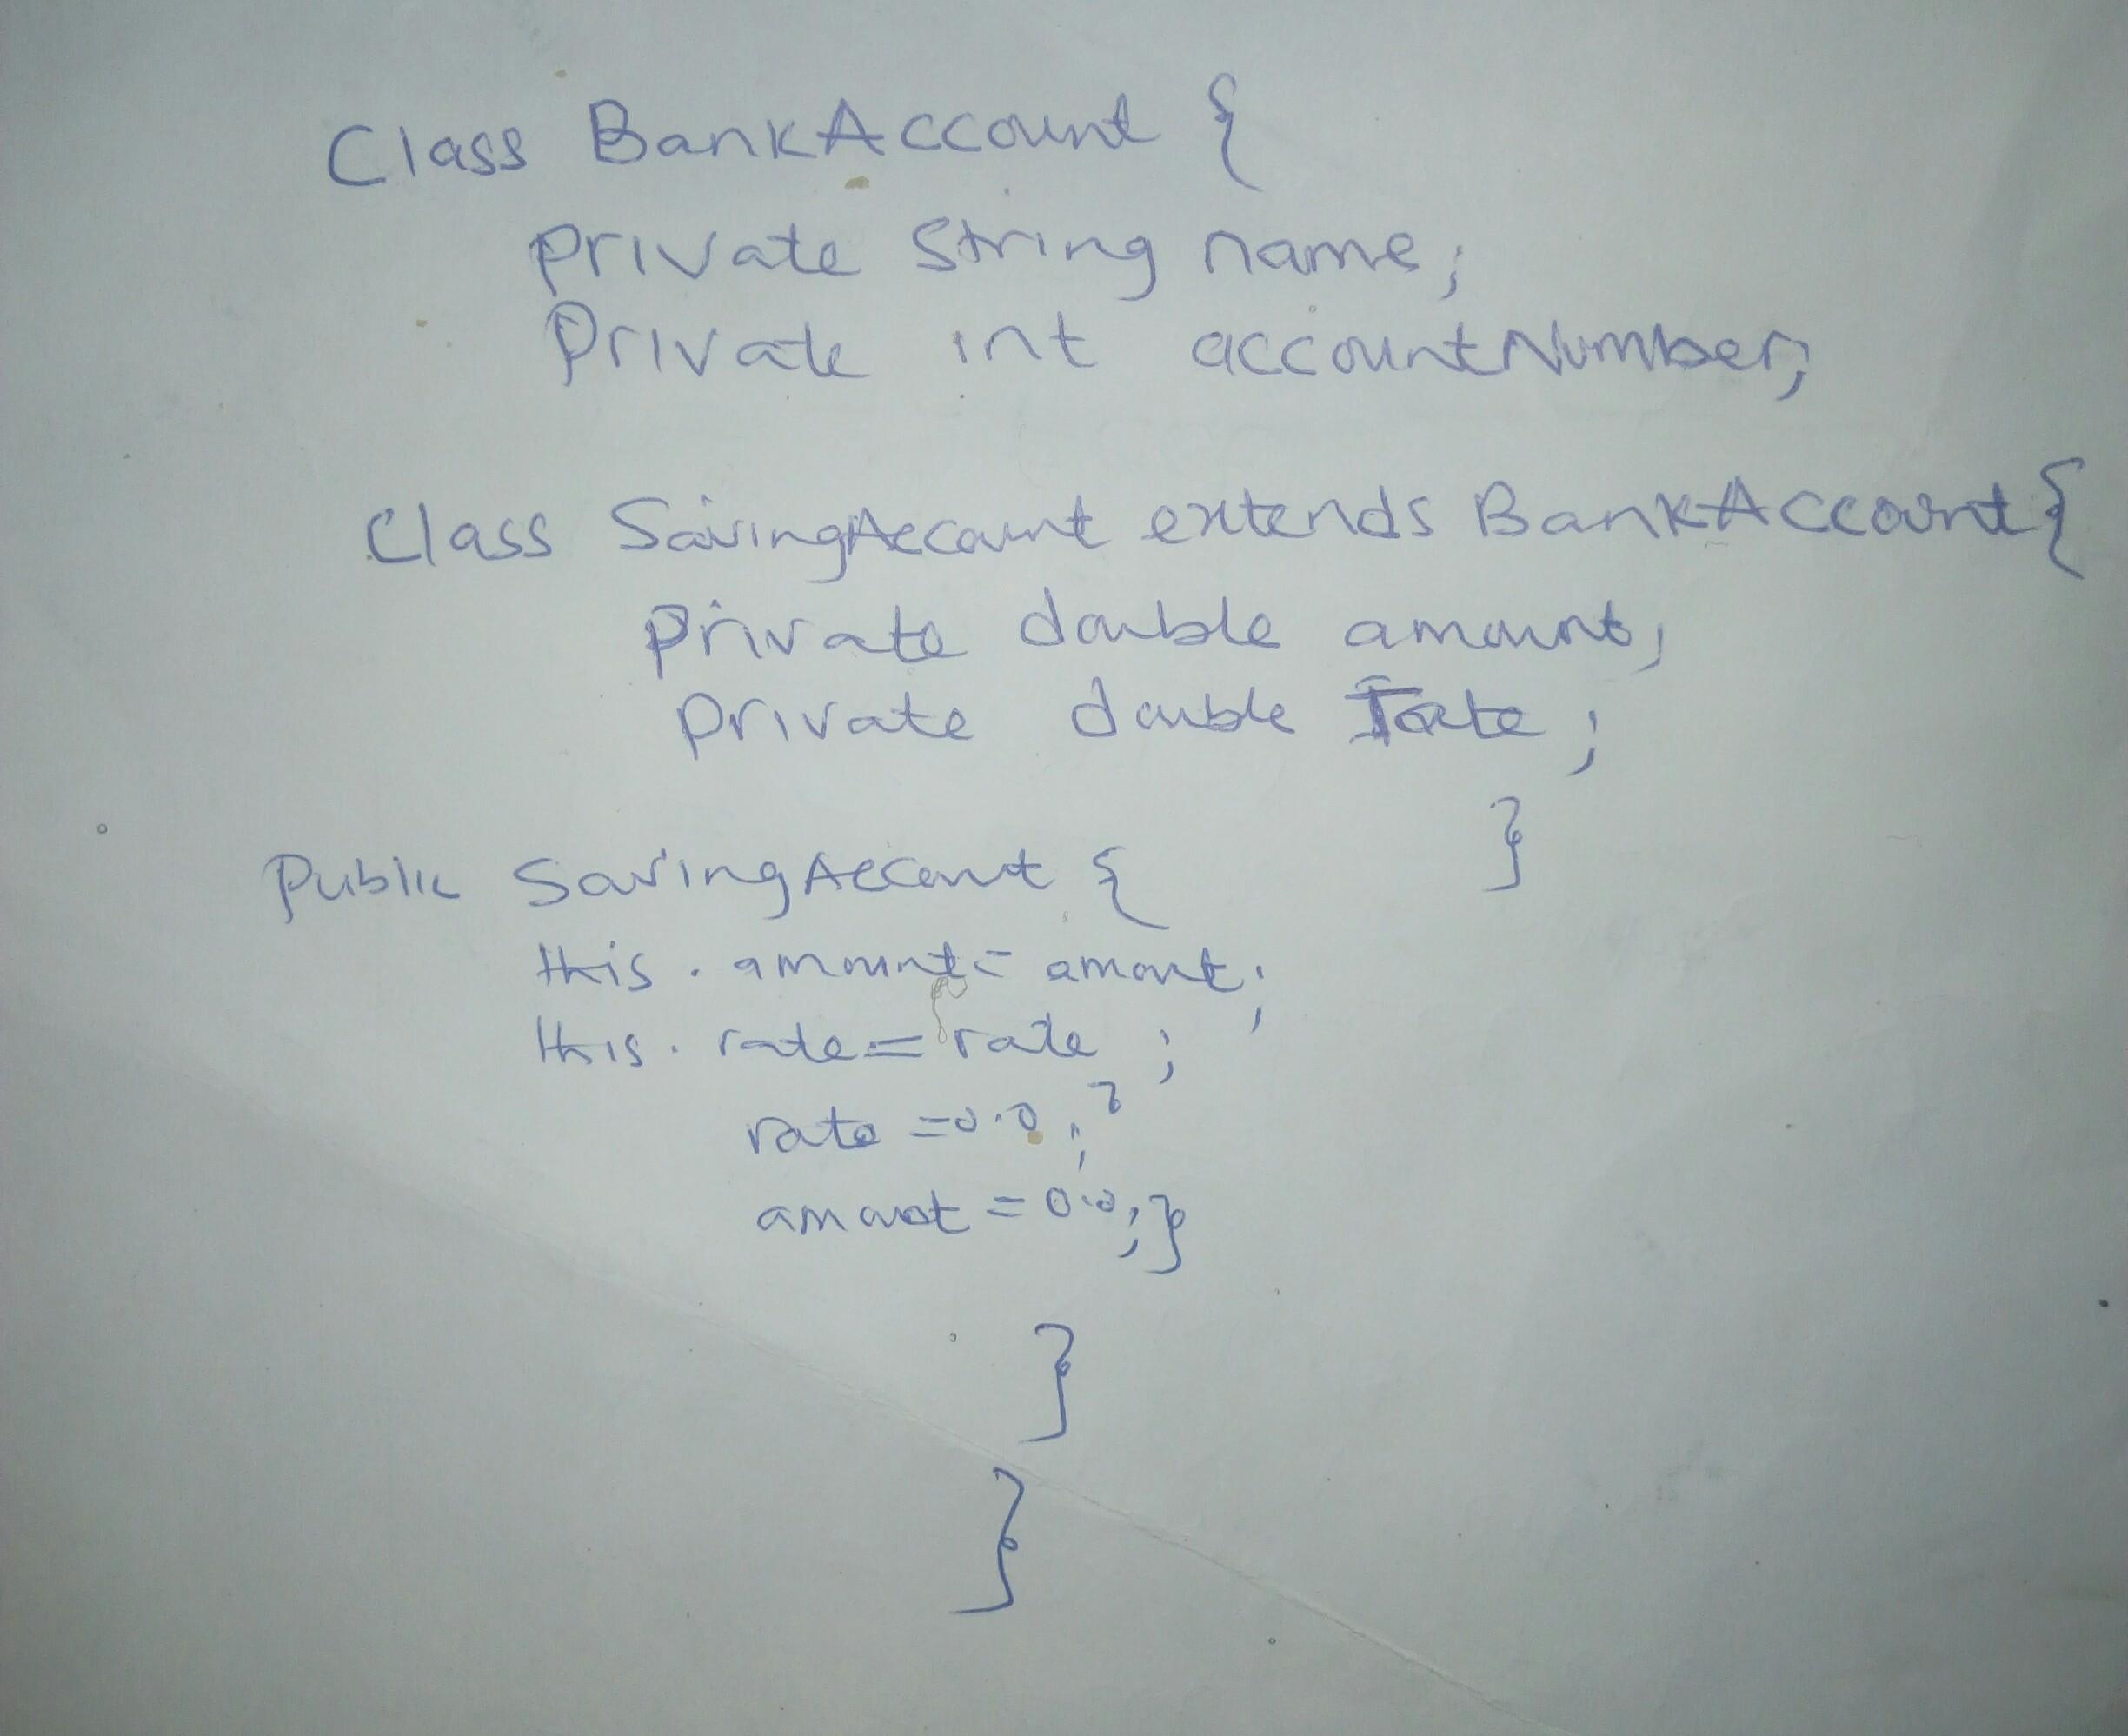 Class BankAccount {
private String name;
Private int accountNumber;
Class SavingAccount extends BankAccount {
private double amount;
private double rate;
}
Public SavingAccount {
this.amount = amount;
this.rate = rate;
rate = 0.0;
amount = 0.0; }
}
}